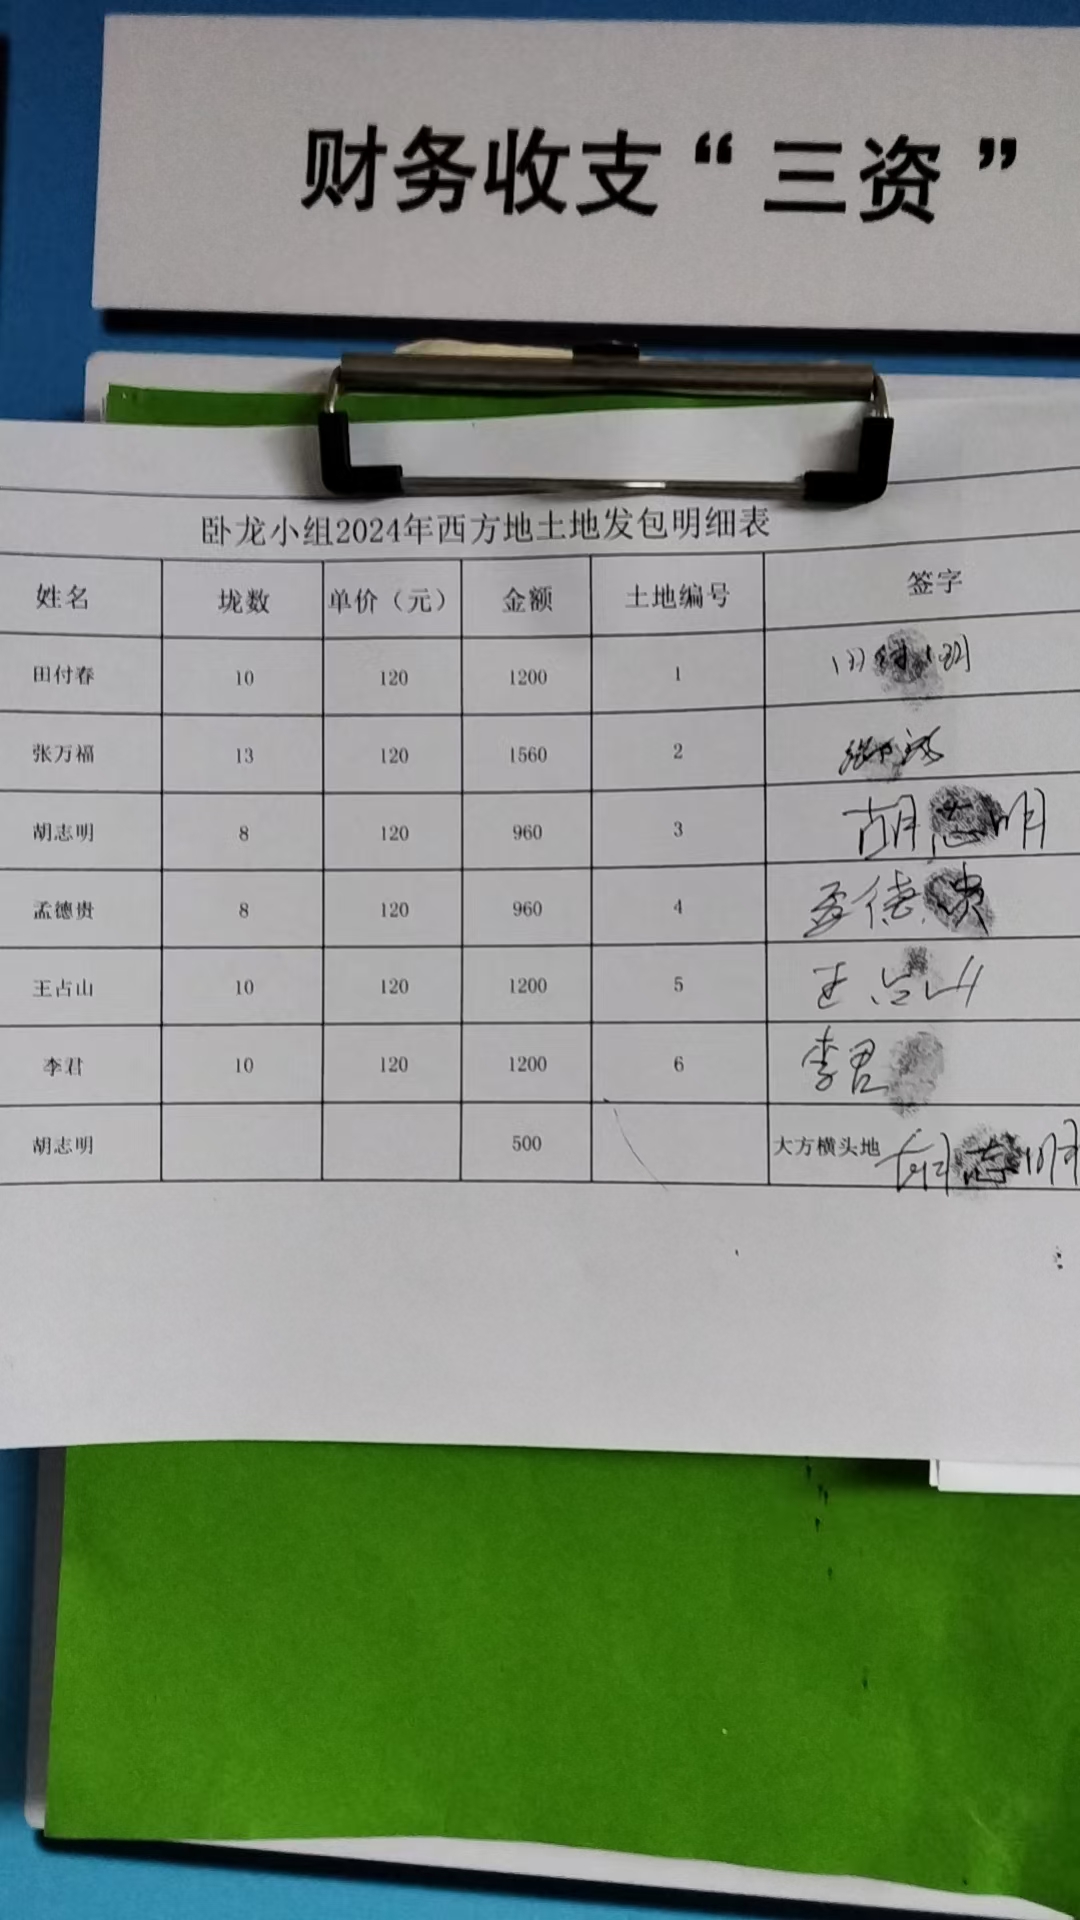 财务收支“三资”
卧龙小组2024年西方地土地发包明细表
姓名 垅数 单价（元） 金额 土地编号 签字
田付春 10 120 1200 1
张万福 13 120 1560 2
胡志明 8 120 960 3 胡志明
孟德贵 8 120 960 4 孟德贵
王占山 10 120 1200 5 王占山
李君 10 120 1200 6 李君
胡志明 500 大方横头地 胡志明